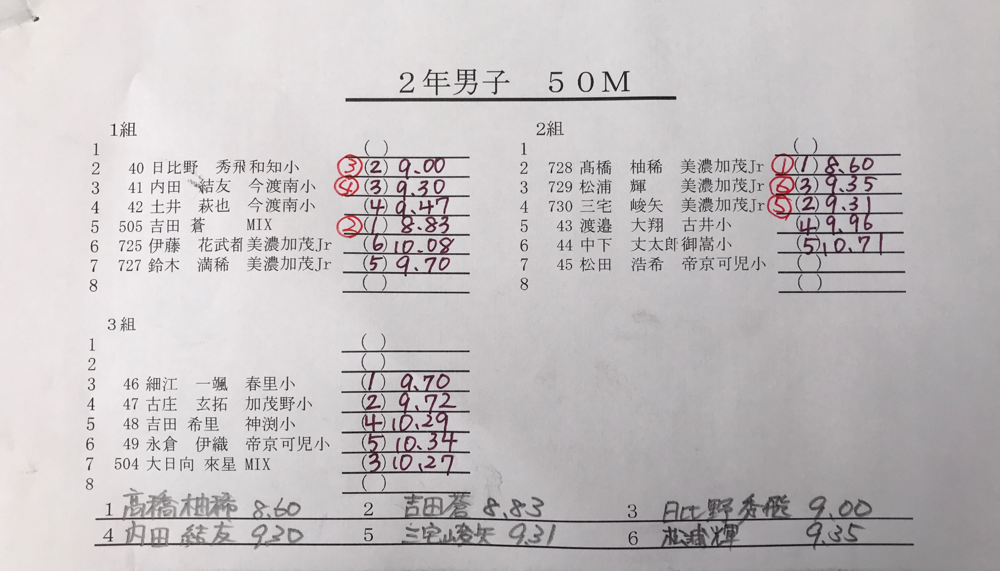 ２年男子　５０Ｍ
1組
1 ( )
2 40 日比野 秀飛 和知小 ③ (2) 9.00
3 41 内田 結友 今渡南小 ④ (3) 9.30
4 42 土井 萩也 今渡南小 (4) 9.47
5 505 吉田 蒼 MIX ② (1) 8.83
6 725 伊藤 花武都 美濃加茂Jr (6) 10.08
7 727 鈴木 満稀 美濃加茂Jr (5) 9.70
8 ( )
2組
1 ( )
2 728 髙橋 柚稀 美濃加茂Jr ① (1) 8.60
3 729 松浦 輝 美濃加茂Jr ⑥ (3) 9.35
4 730 三宅 峻矢 美濃加茂Jr ⑤ (2) 9.31
5 43 渡邉 大翔 古井小 (4) 9.96
6 44 中下 丈太郎 御嵩小 (5) 10.71
7 45 松田 浩希 帝京可児小 ( )
8 ( )
3組
1 ( )
2 ( )
3 46 細江 一颯 春里小 (1) 9.70
4 47 古庄 玄拓 加茂野小 (2) 9.72
5 48 吉田 希里 神渕小 (4) 10.29
6 49 永倉 伊織 帝京可児小 (5) 10.34
7 504 大日向 來星 MIX (3) 10.27
8 ( )
1 高橋柚稀 8.60 2 吉田蒼 8.83 3 日比野秀飛 9.00
4 内田結友 9.30 5 三宅峻矢 9.31 6 松浦輝 9.35